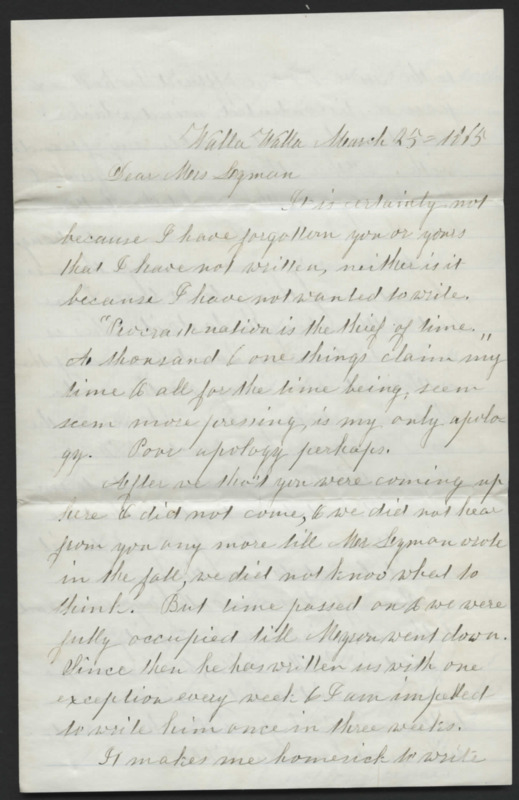 Walla Walla March 25th 1865
Dear Mrs Lyman
It is certainly not
because I have forgotten you or yours
that I have not written, neither is it
because I have not wanted to write.
"Procrastination is the thief of time."
A thousand & one things claim my
time & all for the time being, seem
seem more pressing, is my only apolo-
gy. Poor apology perhaps.
After we tho't you were coming up
here & did not come, & we did not hear
from you any more till Mr Lyman wrote
in the fall, we did not know what to
think. But time passed on & we were
fully occupied till Myron went down.
Since then he has written us with one
exception every week & I am impelled
to write him once in three weeks.
It makes me homesick to write